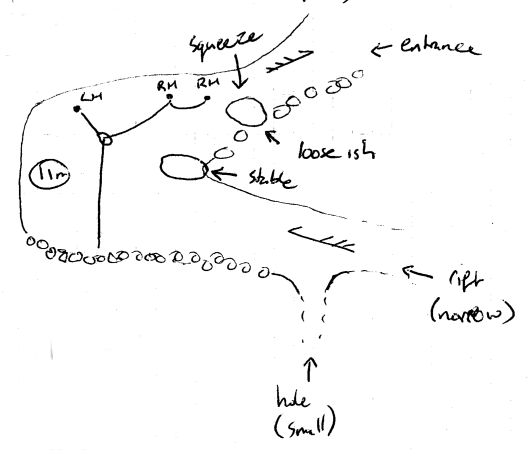 squeeze
← entrance
LH
RH
RH
loose ish
stable
11m
rift
(narrow)
hole
(small)